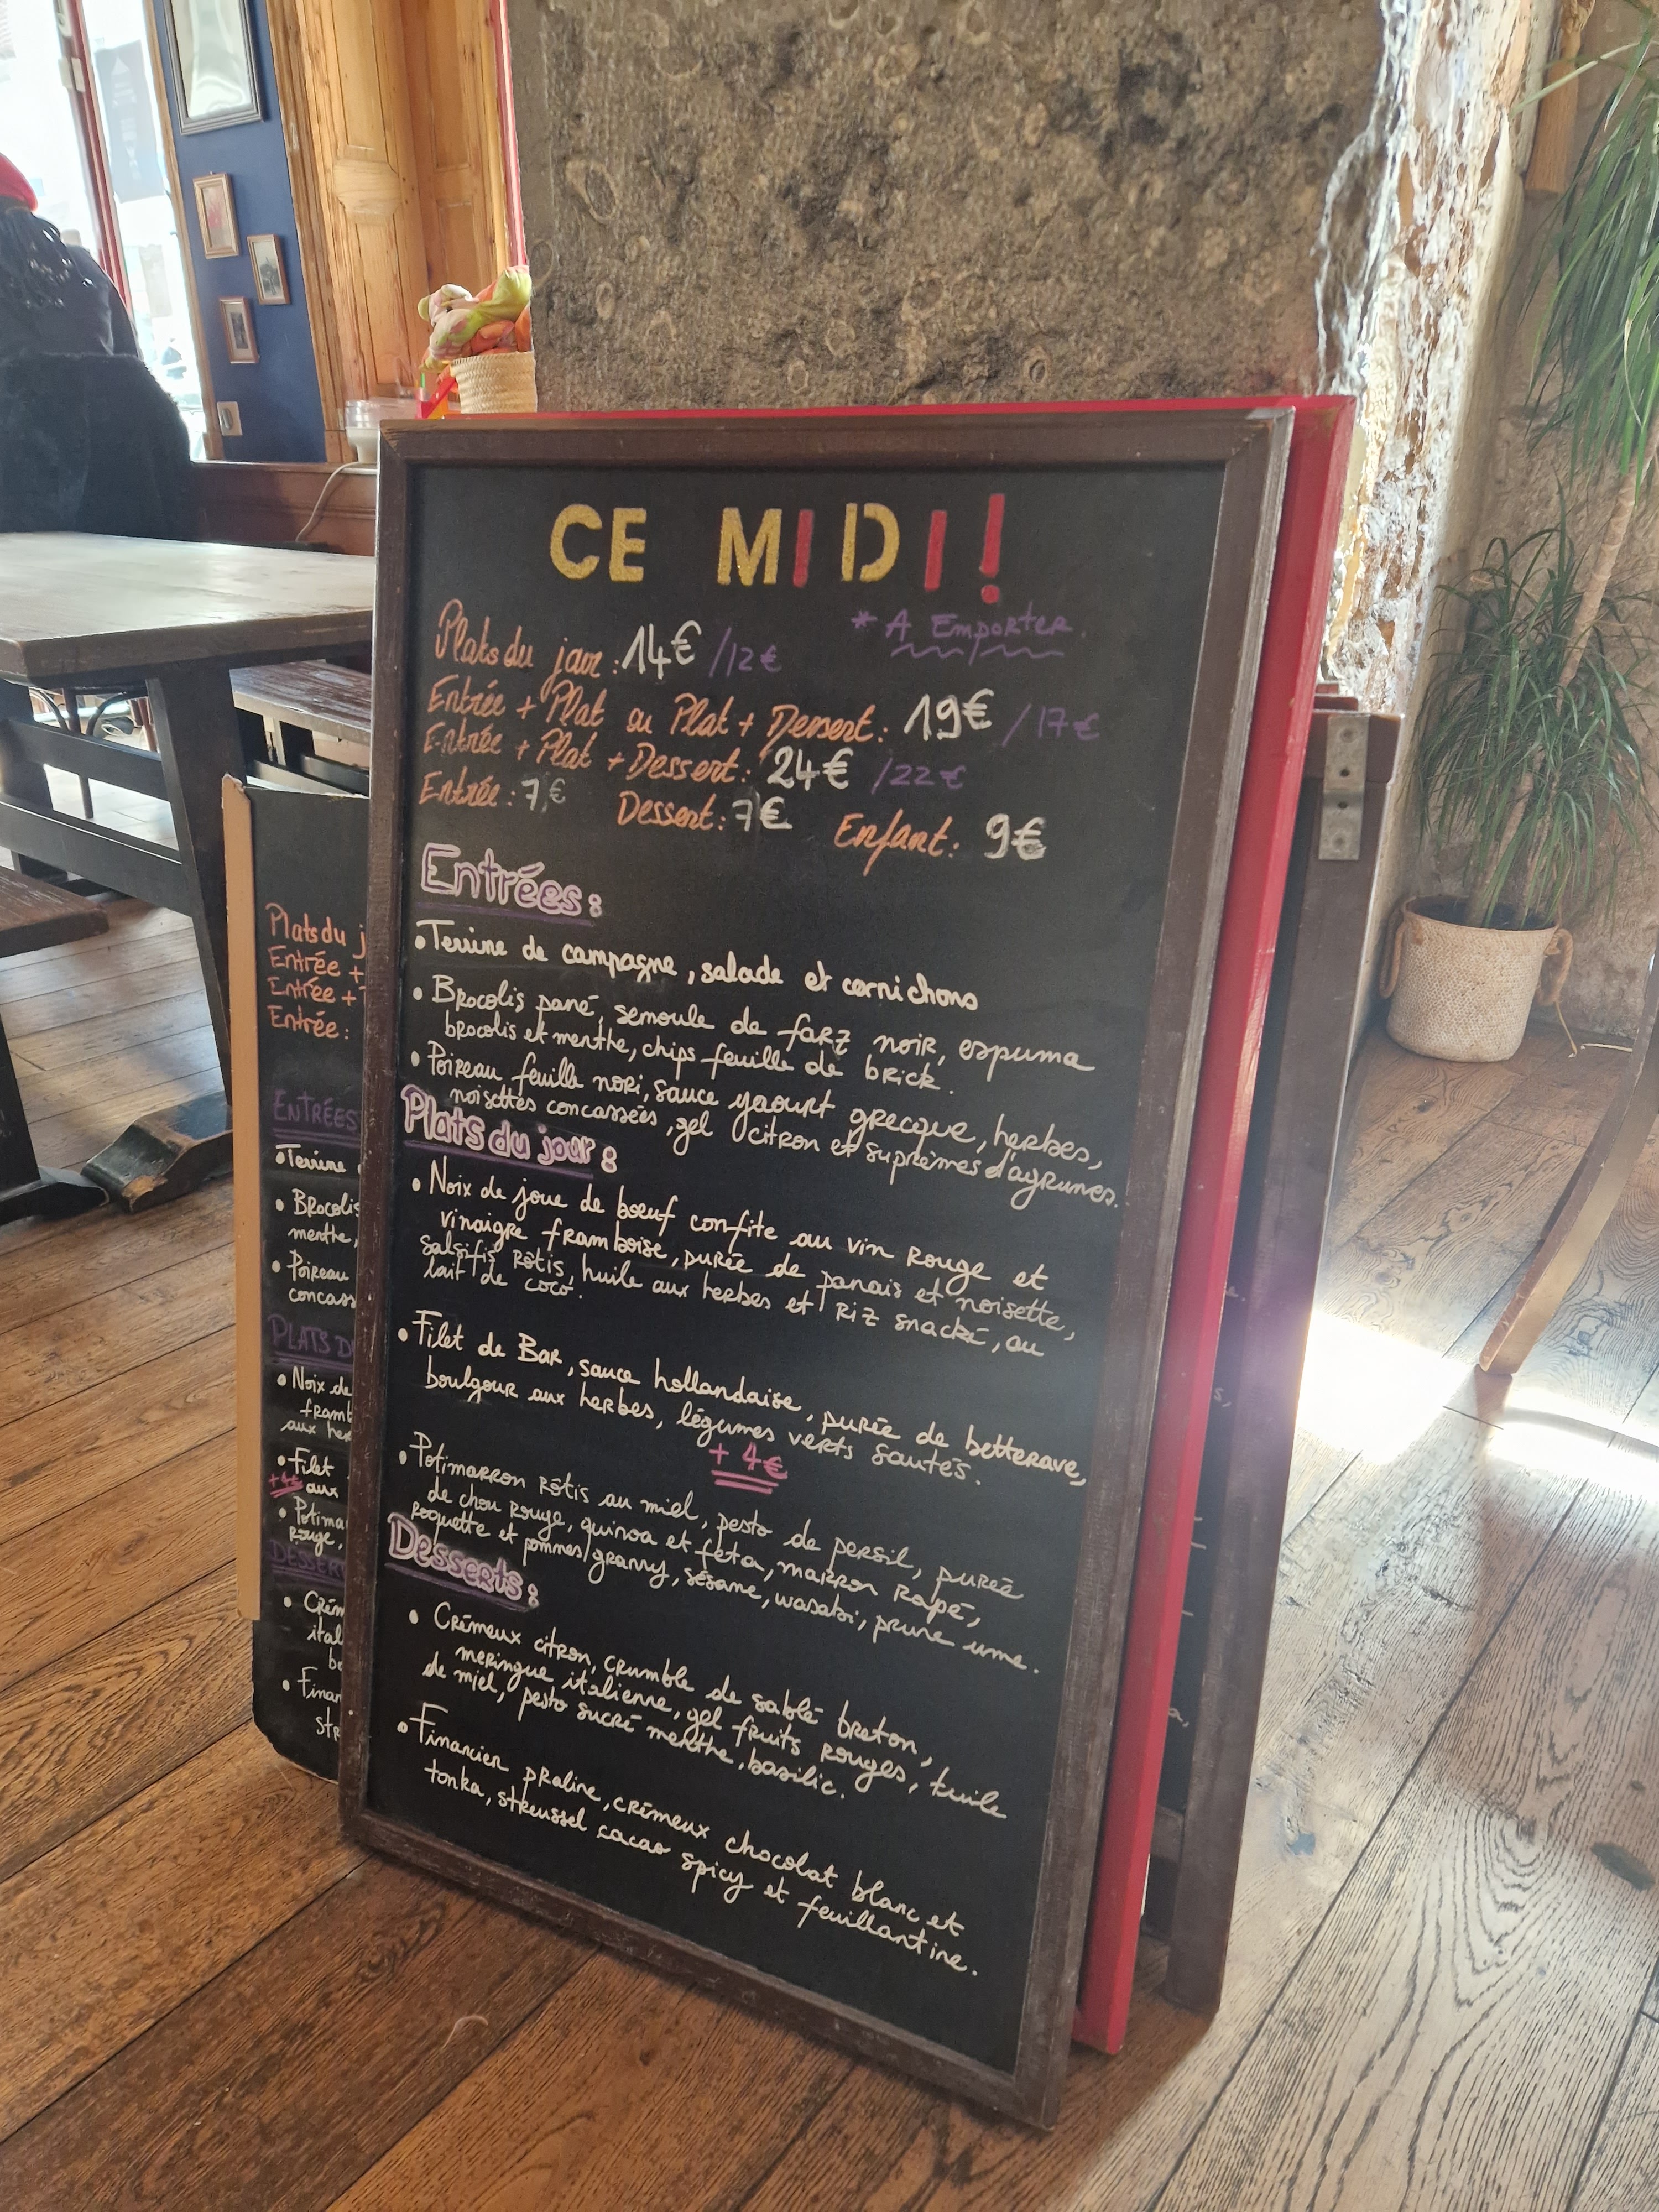 CE MIDI!
* A Emporter.
Plats du jour : 14€ /12€
Entrée + Plat ou Plat + Dessert : 19€ /17€
Entrée + Plat + Dessert : 24€ /22€
Entrée : 7€ Dessert : 7€ Enfant : 9€
Entrées :
• Terrine de campagne, salade et cornichons
• Brocolis pané, semoule de farz noir, espuma
brocolis et menthe, chips feuille de brick.
• Poireau feuille nori, sauce yaourt grecque, herbes,
noisettes concassées, gel citron et suprêmes d'agrumes.
Plats du jour :
• Noix de joue de bœuf confite au vin rouge et
vinaigre framboise, purée de panais et noisette,
salsifis rôtis, huile aux herbes et riz snacké, au
lait de coco.
• Filet de Bar, sauce hollandaise, purée de betterave,
boulgour aux herbes, légumes verts sautés.
+ 4€
• Potimarron rôtis au miel, pesto de persil, purée
de chou rouge, quinoa et feta, marron rapé,
roquette et pommes granny, sésame, wasabi, prune ume.
Desserts :
• Crémeux citron, crumble de sablé breton,
meringue italienne, gel fruits rouges, tuile
de miel, pesto sucré menthe, basilic.
• Financier praline, crémeux chocolat blanc et
tonka, streussel cacao spicy et feuillantine.
Plats du j
Entrée +
Entrée +
Entrée :
ENTRÉES
• Terrine
• Brocolis
menthe,
• Poireau
concass
PLATS D
• Noix de
framb
aux her
• Filet
+4€ aux
• Potima
Rouge,
DESSER
• Crém
ital
be
• Finan
str